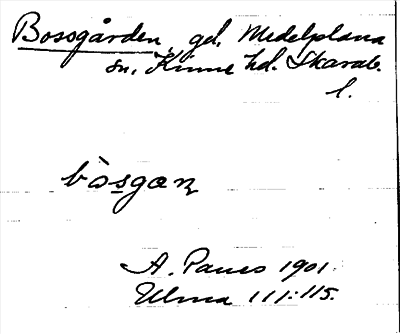 Bosogården, gd. Medelplana
sn. Kinne hd. Skarab.
l.
bòsgœɳ
A. Paues 1901.
Ulma 111:115.